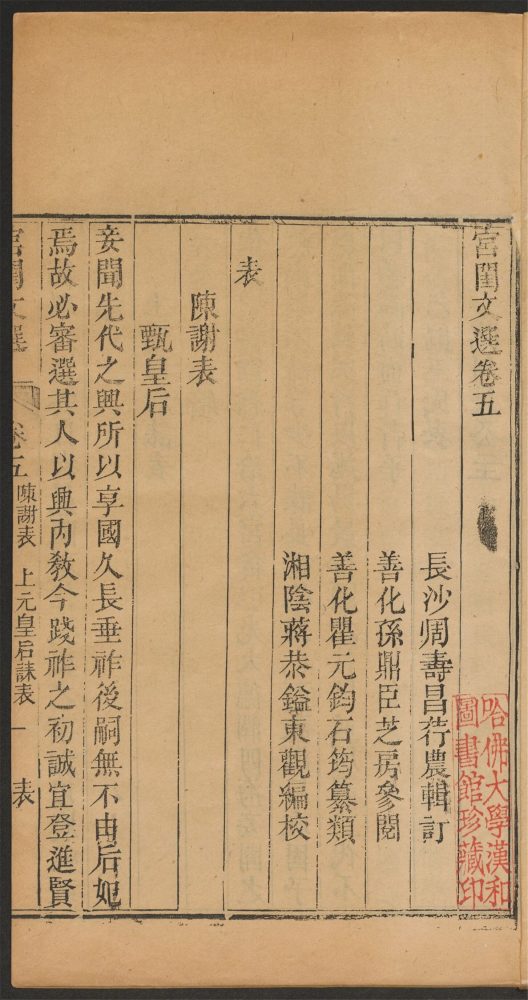 宮閨文選卷五
長沙周壽昌荇農輯訂
善化孫鼎臣芝房參閱
善化瞿元鈞石筠纂類
湘陰蔣恭鎰東觀編校
表
陳謝表
甄皇后
妾聞先代之興所以享國久長垂祚後嗣無不由后妃
焉故必審選其人以興內教今踐祚之初誠宜登進賢
宮閨文選 卷五 陳謝表 上元皇后誄表 一 表
哈佛大學漢和
圖書館珍藏印